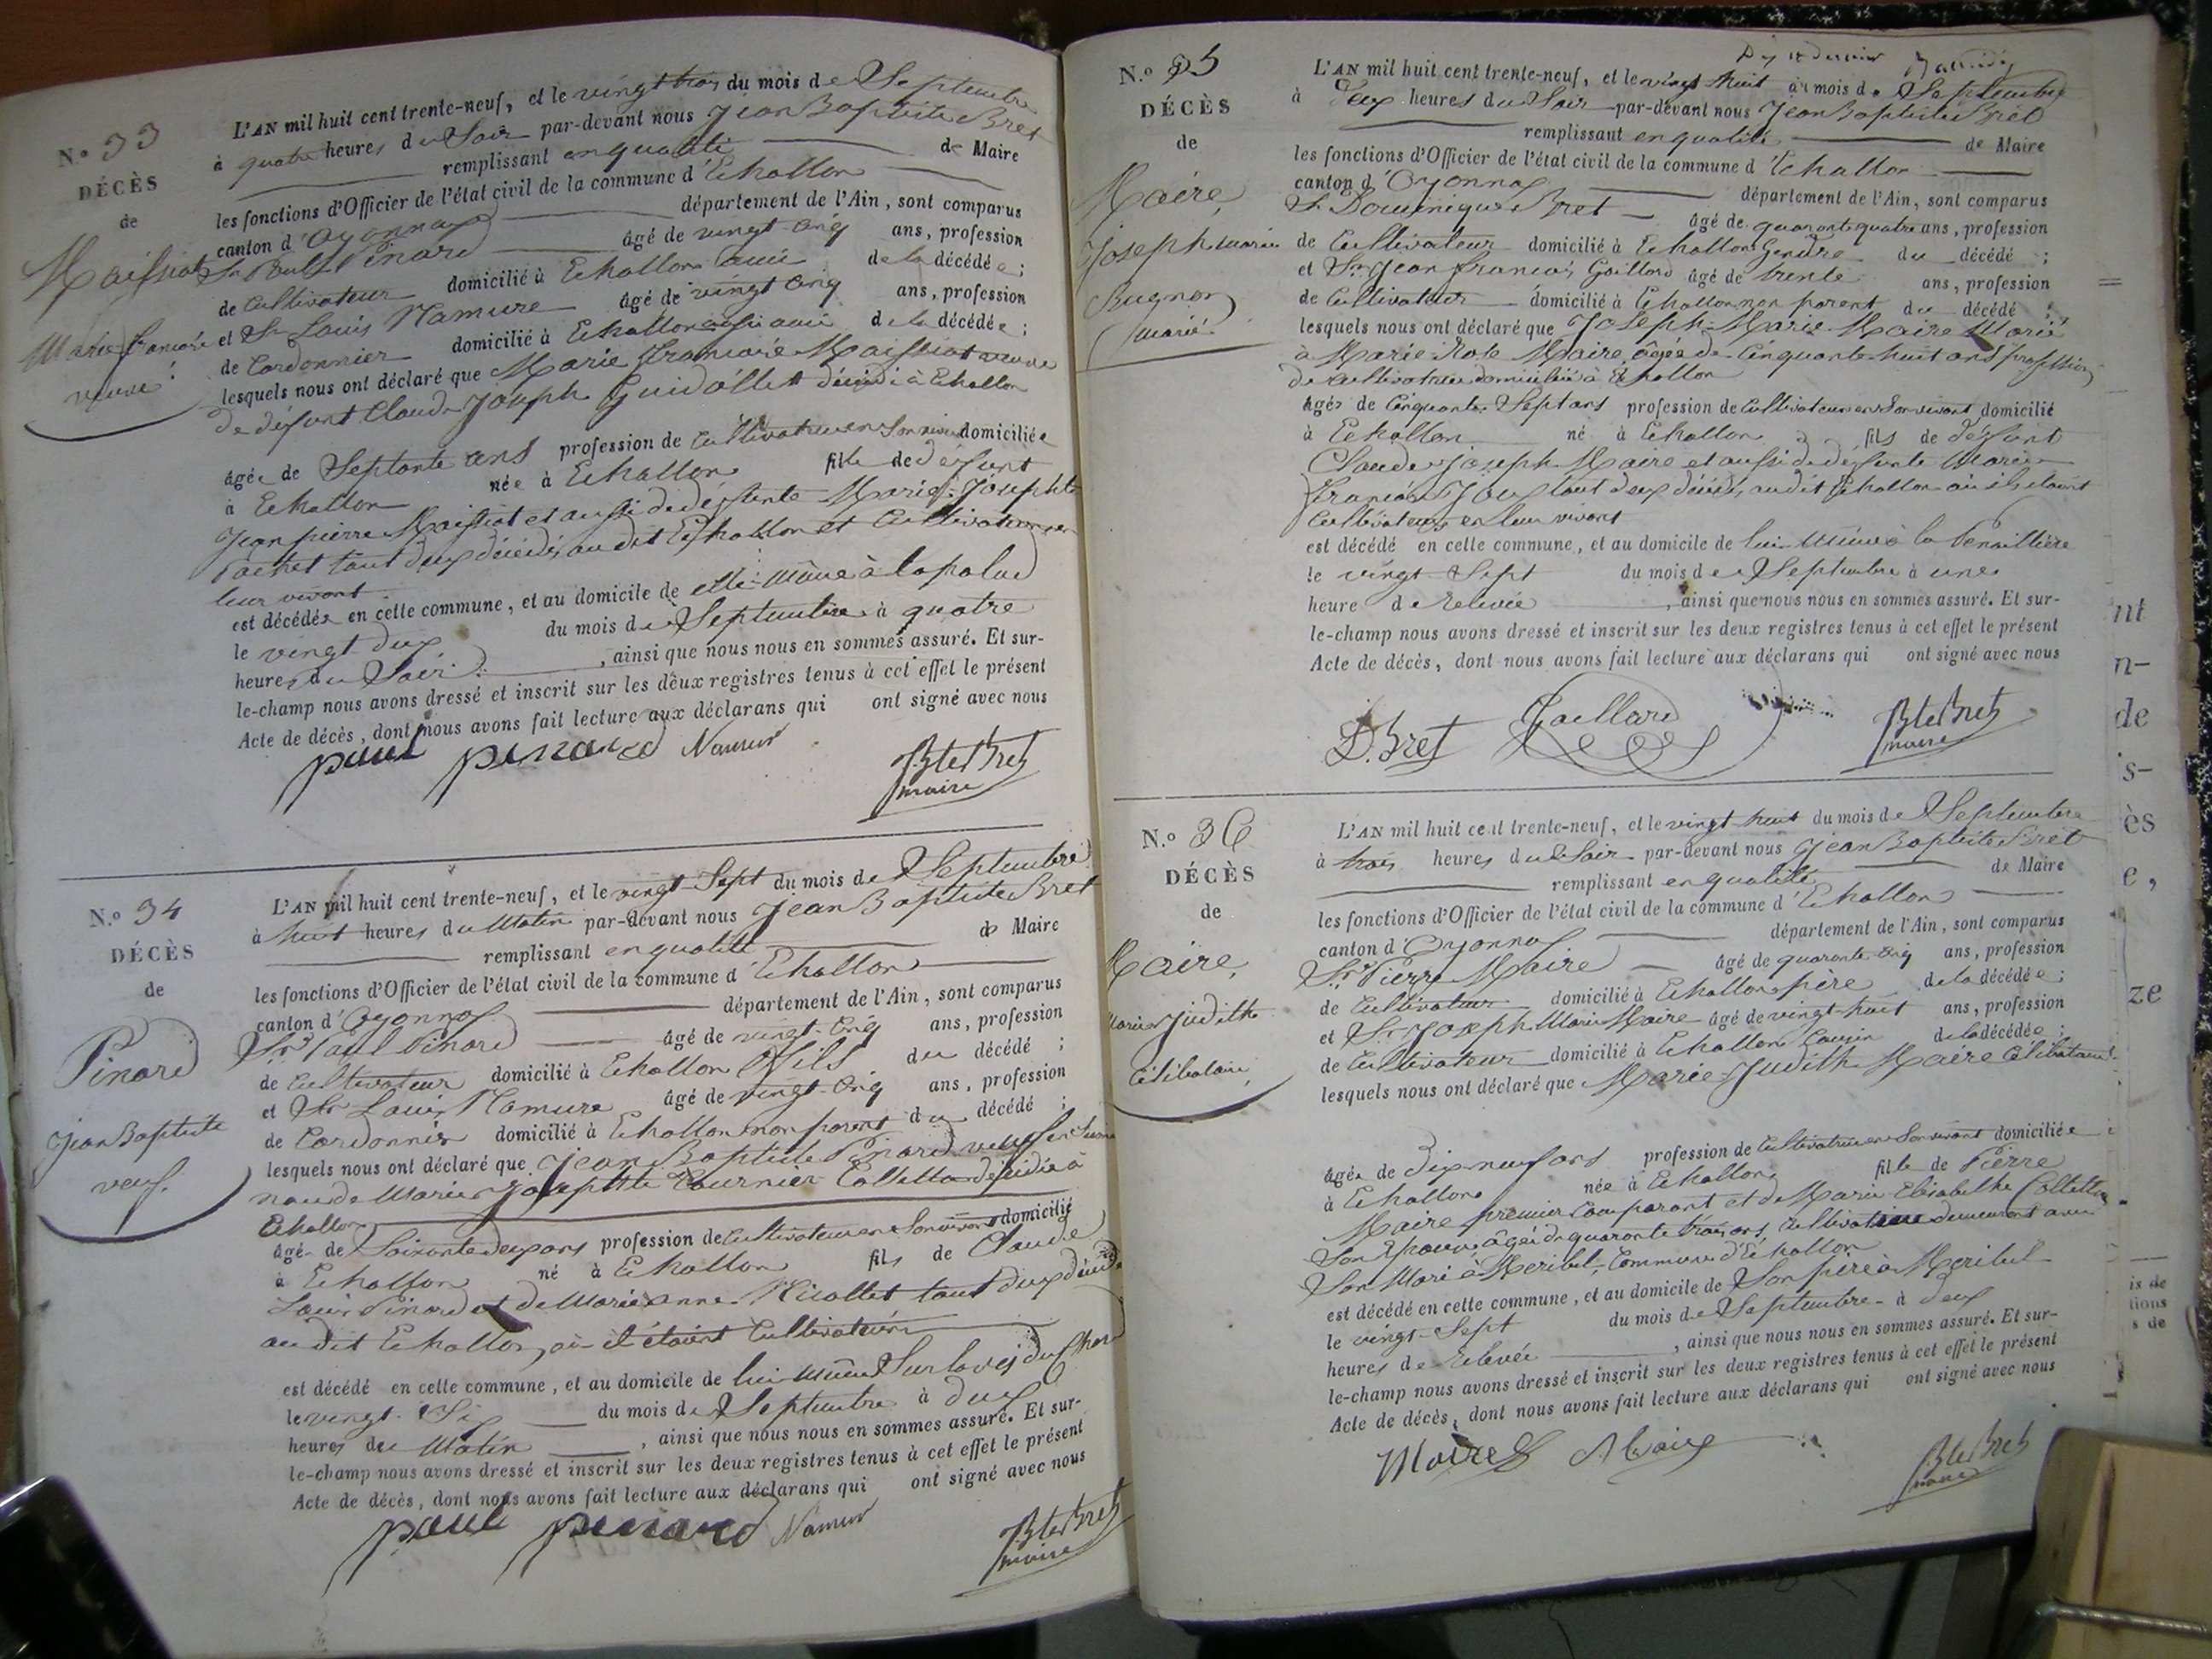 N.º 33
DÉCÈS
de
Maissiat
Marie françoise
veuve
L'AN mil huit cent trente-neuf, et le vingt trois du mois de Septembre
à quatre heures du Soir par-devant nous Jean Baptiste Bret
remplissant en qualité de Maire
les fonctions d'Officier de l'état civil de la commune d'Echallon
canton d'Oyonnax département de l'Ain, sont comparus
Sr Paul Pinard âgé de vingt cinq ans, profession
de Cultivateur domicilié à Echallon ami de la décédée;
et Sr Louis Namure âgé de vingt cinq ans, profession
de Cordonnier domicilié à Echallon aussi ami de la décédée;
lesquels nous ont déclaré que Marie françoise Maissiat veuve
de défunt Claude Joseph décédé à Echallon
âgée de Septante ans profession de Cultivatrice en Son vivant domiciliée
à Echallon née à Echallon fille de défunt
Jean pierre Maissiat et aussi de défunte Marie Josephte
tout deux décédés au dit Echallon et Cultivateurs en
leur vivant
est décédée en cette commune, et au domicile de elle-même à la palud
le vingt deux du mois de Septembre à quatre
heures du Soir, ainsi que nous nous en sommes assuré. Et sur-
le-champ nous avons dressé et inscrit sur les deux registres tenus à cet effet le présent
Acte de décès, dont nous avons fait lecture aux déclarans qui ont signé avec nous
paul pinard Namur Bte Bret
maire
N.º 34
DÉCÈS
de
Pinard
Jean Baptiste
veuf.
L'AN mil huit cent trente-neuf, et le vingt Sept du mois de Septembre
à huit heures du Matin par-devant nous Jean Baptiste Bret
remplissant en qualité de Maire
les fonctions d'Officier de l'état civil de la commune d'Echallon
canton d'Oyonnax département de l'Ain, sont comparus
Sr Paul Pinard âgé de vingt-cinq ans, profession
de Cultivateur domicilié à Echallon fils du décédé;
et Sr Louis Namure âgé de vingt-cinq ans, profession
de Cordonnier domicilié à Echallon non parent du décédé;
lesquels nous ont déclaré que Jean Baptiste Pinard veuf
de Marie Josephte Tournier Collettaz décédée à
Echallon
âgé de Soixante deux ans profession de Cultivateur en Son vivant domicilié
à Echallon né à Echallon fils de Claude
Louis Pinard et de Marie anne Nicollet tout deux décédés
au dit Echallon, où il étaient Cultivateurs
est décédé en cette commune, et au domicile de lui-même Sur
le vingt-Six du mois de Septembre à deux
heures du Matin, ainsi que nous nous en sommes assuré. Et sur-
le-champ nous avons dressé et inscrit sur les deux registres tenus à cet effet le présent
Acte de décès, dont nous avons fait lecture aux déclarans qui ont signé avec nous
paul pinard Namur Bte Bret
maire
N.º 35
DÉCÈS
de
Maire,
Joseph marie
Bugnon
marié
L'AN mil huit cent trente-neuf, et le vingt huit du mois de Septembre
à deux heures du Soir par-devant nous Jean Baptiste Bret
remplissant en qualité de Maire
les fonctions d'Officier de l'état civil de la commune d'Echallon
canton d'Oyonnax département de l'Ain, sont comparus
Sr Dominique Bret âgé de quarante quatre ans, profession
de Cultivateur domicilié à Echallon Gendre du décédé;
et Sr Jean françois Gaillard âgé de trente ans, profession
de Cultivateur domicilié à Echallon non parent du décédé;
lesquels nous ont déclaré que Joseph-Marie Maire Marié
à Marie Rose Maire, âgée de Cinquante huit ans profession
de Cultivatrice domiciliée à Echallon
âgé de Cinquante Sept ans profession de Cultivateur en Son vivant domicilié
à Echallon né à Echallon fils de défunt
Claude Joseph Maire et aussi de défunte Marie
françoise Joux tout deux décédés au dit Echallon où ils étaient
Cultivateurs en leur vivant
est décédé en cette commune, et au domicile de lui Même à la
le vingt-Sept du mois de Septembre à une
heure de relevée, ainsi que nous nous en sommes assuré. Et sur-
le-champ nous avons dressé et inscrit sur les deux registres tenus à cet effet le présent
Acte de décès, dont nous avons fait lecture aux déclarans qui ont signé avec nous
D. Bret Gaillard Bte Bret
maire
N.º 36
DÉCÈS
de
Maire,
Marie Judithe
Célibataire,
L'AN mil huit cent trente-neuf, et le vingt huit du mois de Septembre
à trois heures du Soir par-devant nous Jean Baptiste Bret
remplissant en qualité de Maire
les fonctions d'Officier de l'état civil de la commune d'Echallon
canton d'Oyonnax département de l'Ain, sont comparus
Sr Pierre Maire âgé de quarante cinq ans, profession
de Cultivateur domicilié à Echallon père de la décédée;
et Sr Joseph Marie Maire âgé de vingt-huit ans, profession
de Cultivateur domicilié à Echallon Cousin de la décédée;
lesquels nous ont déclaré que Marie-Judith Maire Célibataire
âgée de dix neuf ans profession de Cultivatrice en Son vivant domiciliée
à Echallon née à Echallon fille de Pierre
Maire premier Comparant et de Marie Elisabethe Collettaz
Son Epouse âgée de quarante trois ans, Cultivatrice demeurant avec
Son Mari à Meribel, Commune d'Echallon
est décédé en cette commune, et au domicile de Son père à Meribel
le vingt-Sept du mois de Septembre à deux
heures de relevée, ainsi que nous nous en sommes assuré. Et sur-
le-champ nous avons dressé et inscrit sur les deux registres tenus à cet effet le présent
Acte de décès, dont nous avons fait lecture aux déclarans qui ont signé avec nous
Maire Maire Bte Bret
maire